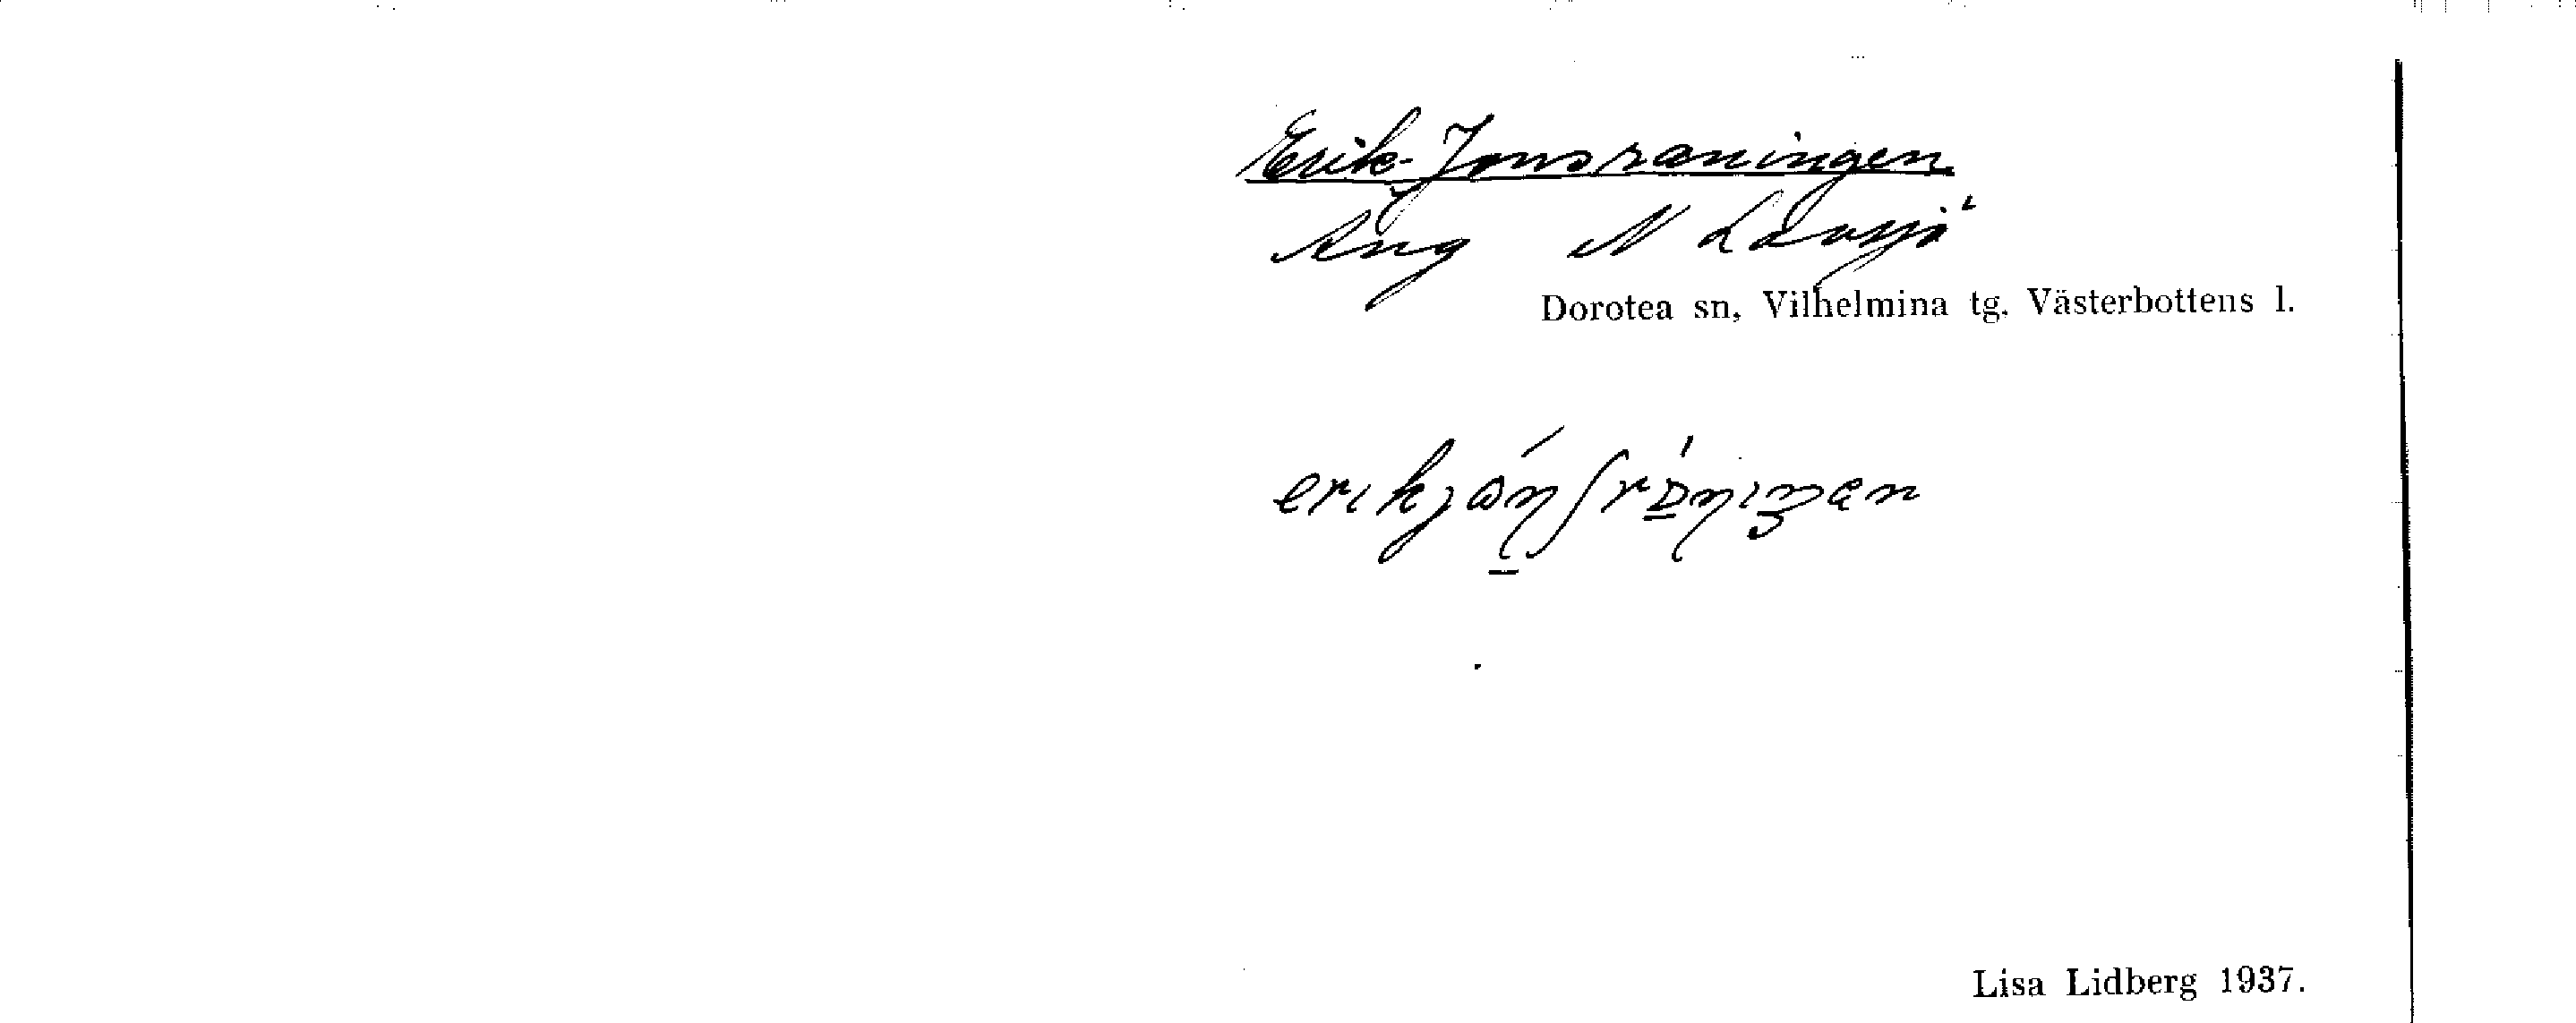 Erik-Jonsraningen
Äng N Lavsjö
Dorotea sn, Vilhelmina tg. Västerbottens l.
Lisa Lidberg 1937.